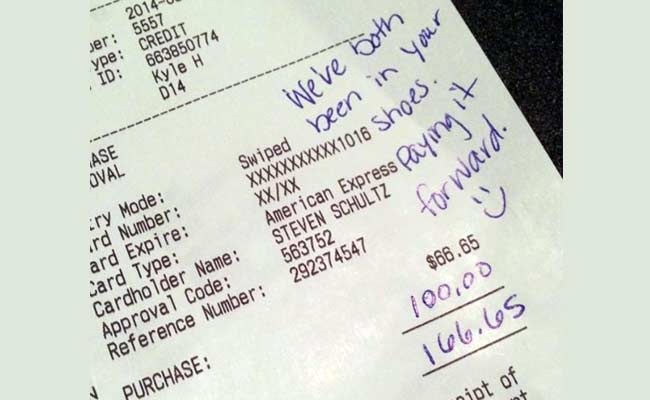 2014-0
er: 5557
ype: CREDIT
ID: 663850774
Kyle H
D14
We've both
been in your
shoes.
Paying it
forward.
ASE
OVAL
ry Mode: Swiped
rd Number: XXXXXXXXXXX1016
ard Expire: XX/XX
Card Type: American Express
Cardholder Name: STEVEN SCHULTZ
Approval Code: 563752
Reference Number: 292374547
$66.65
100.00
PURCHASE: 166.65
ipt of